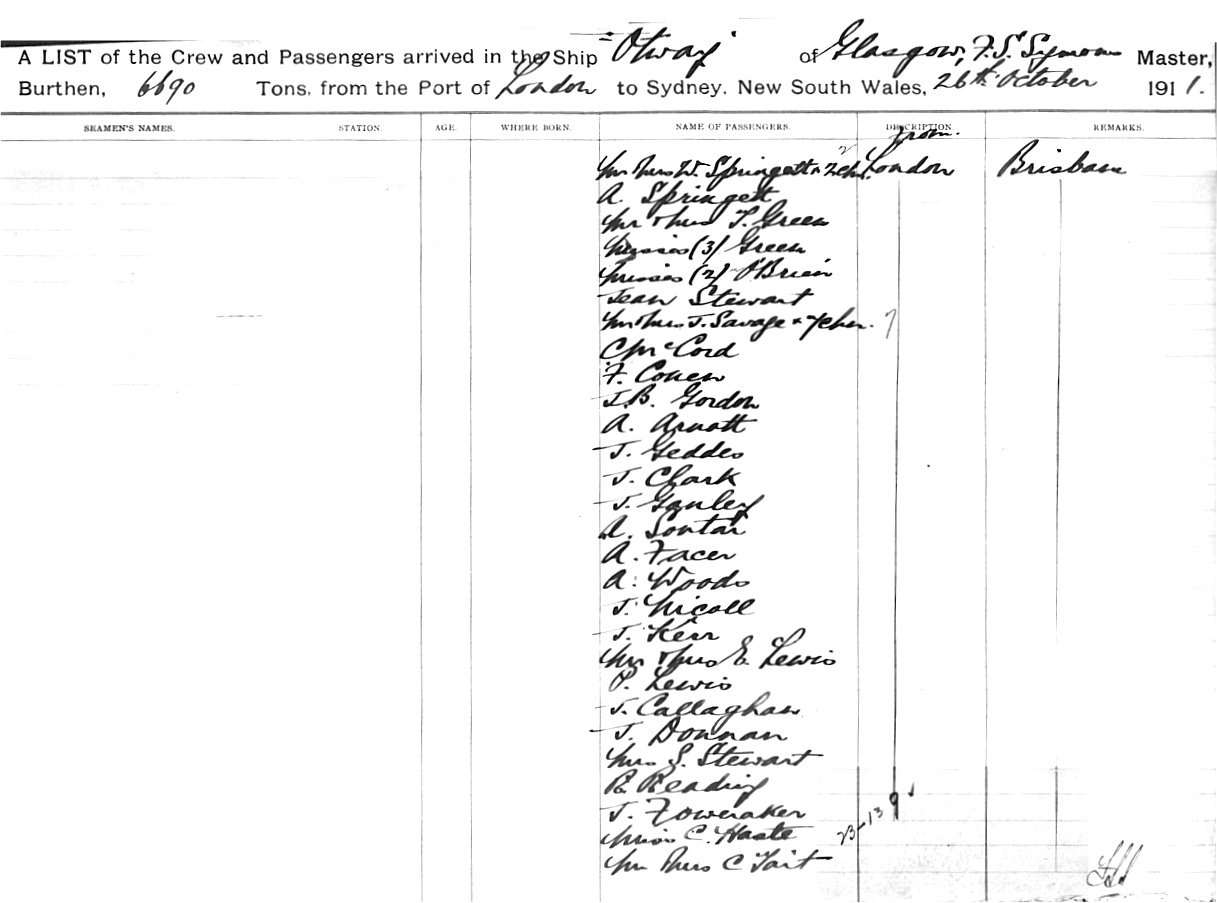 A LIST of the Crew and Passengers arrived in the Ship "Otway" of Glasgow, F. S. Symons Master,
Burthen, 6690 Tons, from the Port of London to Sydney, New South Wales, 26th October 1911.
SEAMEN'S NAMES. STATION. AGE. WHERE BORN. NAME OF PASSENGERS. DESCRIPTION. REMARKS.
from.
Mr Mrs W. Springett & 2 ch. London Brisbane
A. Springett
Mr & Mrs T. Green
Misses (3) Green
Misses (2) O'Brien
Jean Stewart
Mr & Mrs J. Savage & 7 cher. 7
C McCord
F. Conen
J. B. Gordon
A. Arnott
J. Geddes
J. Clark
J. Ganley
A. Soutar
A. Facer
A. Woods
J. Nicoll
J. Kerr
Mr & Mrs E. Lewis
P. Lewis
J. Callaghan
J. Donnan
Mrs S. Stewart
R. Reading
J. Foweraker
Miss C. Haste 23-13 9
Mr Mrs C Tait